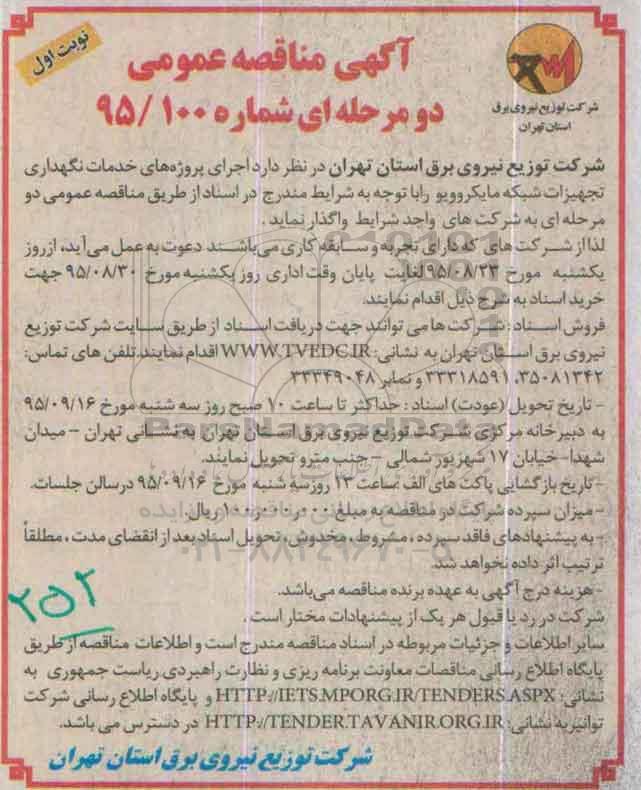 نوبت اول
آگهی مناقصه عمومی
دو مرحله ای شماره ۹۵/۱۰۰
شرکت توزیع نیروی برق
استان تهران
شرکت توزیع نیروی برق استان تهران در نظر دارد اجرای پروژه‌های خدمات نگهداری
تجهیزات شبکه مایکروویو را با توجه به شرایط مندرج در اسناد از طریق مناقصه عمومی دو
مرحله ای به شرکت های واجد شرایط واگذار نماید .
لذا از شرکت های که دارای تجربه و سابقه کاری می‌باشند دعوت به عمل می‌آید، از روز
یکشنبه مورخ ۹۵/۰۸/۲۳ لغایت پایان وقت اداری روز یکشنبه مورخ ۹۵/۰۸/۳۰ جهت
خرید اسناد به شرح ذیل اقدام نمایند.
فروش اسناد : شرکت ها می توانند جهت دریافت اسناد از طریق سایت شرکت توزیع
نیروی برق استان تهران به نشانی: WWW.TVEDC.IR اقدام نمایند. تلفن های تماس:
۳۵۰۸۱۳۴۲، ۳۳۳۱۸۵۹۱ و نمابر ۳۳۳۴۹۰۴۸
- تاریخ تحویل (عودت) اسناد : حداکثر تا ساعت ۱۰ صبح روز سه شنبه مورخ ۹۵/۰۹/۱۶
به دبیرخانه مرکزی شرکت توزیع نیروی برق استان تهران به نشانی تهران – میدان
شهدا- خیابان ۱۷ شهریور شمالی – جنب مترو تحویل نمایند.
- تاریخ بازگشایی پاکت های الف ساعت ۱۳ روز سه شنبه مورخ ۹۵/۰۹/۱۶ در سالن جلسات.
- میزان سپرده شرکت در مناقصه به مبلغ ریال
- به پیشنهادهای فاقد سپرده ، مشروط ، مخدوش ، تحویل اسناد بعد از انقضای مدت ، مطلقاً
ترتیب اثر داده نخواهد شد.
- هزینه درج آگهی به عهده برنده مناقصه می‌باشد.
شرکت در رد یا قبول هر یک از پیشنهادات مختار است .
سایر اطلاعات و جزئیات مربوطه در اسناد مناقصه مندرج است و اطلاعات مناقصه از طریق
پایگاه اطلاع رسانی مناقصات معاونت برنامه ریزی و نظارت راهبردی ریاست جمهوری به
نشانی: HTTP://IETS.MPORG.IR/TENDERS.ASPX و پایگاه اطلاع رسانی شرکت
توانیر به نشانی: HTTP://TENDER.TAVANIR.ORG.IR در دسترس می باشد.
شرکت توزیع نیروی برق استان تهران
۲۵۲
ParsNamadData
۰۲۱-۸۸۳۴۹۶۷۰-۵